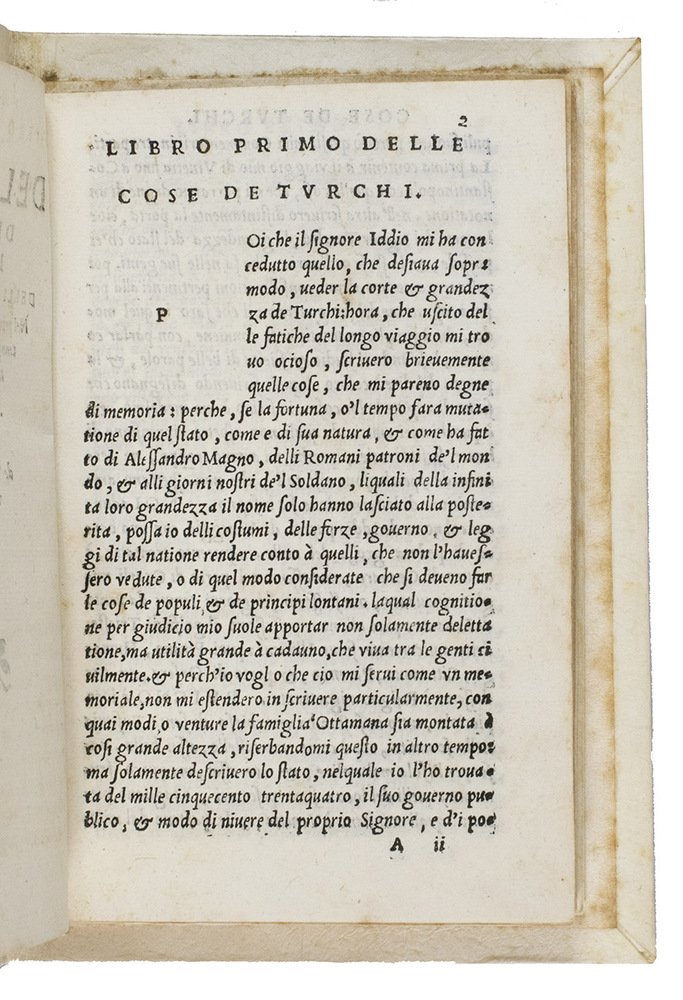 2
LIBRO PRIMO DELLE
COSE DE TVRCHI.
P
Oi che il ſignore Iddio mi ha con
cedutto quello, che deſiaua ſopra
modo, ueder la corte & grandez
za de Turchi:hora, che uſcito del
le fatiche del longo viaggio mi tro
uo ocioſo, ſcriuero brieuemente
quelle coſe, che mi pareno degne
di memoria: perche, ſe la fortuna, o'l tempo fara muta-
tione di quel ſtato, come e di ſua natura, & come ha fat
to di Aleſſandro Magno, delli Romani patroni de'l mon
do, & alli giorni noſtri de'l Soldano, liquali della infini
ta loro grandezza il nome ſolo hanno laſciato alla poſte-
rita, poſſa io delli coſtumi, delle forze, gouerno, & leg
gi di tal natione rendere conto à quelli, che non l'haueſ-
ſero vedute, o di quel modo conſiderate che ſi deueno far
le coſe de populi, & de principi lontani. laqual cognitio-
ne per giudicio mio ſuole apportar non ſolamente deletta
tione, ma utilità grande à cadauno, che viua tra le genti ci
uilmente. & perch'io vogl o che cio mi ſerui come vn me-
moriale, non mi eſtendero in ſcriuere particularmente, con
quai modi, o venture la famiglia Ottamana ſia montata à
coſi grande altezza, riſerbandomi queſto in altro tempo:
ma ſolamente deſcriuero lo ſtato, nelquale io l'ho troua-
ta del mille cinquecento trentaquatro, il ſuo gouerno pu-
blico, & modo di niuere del proprio Signore, e d'i po-
A ii